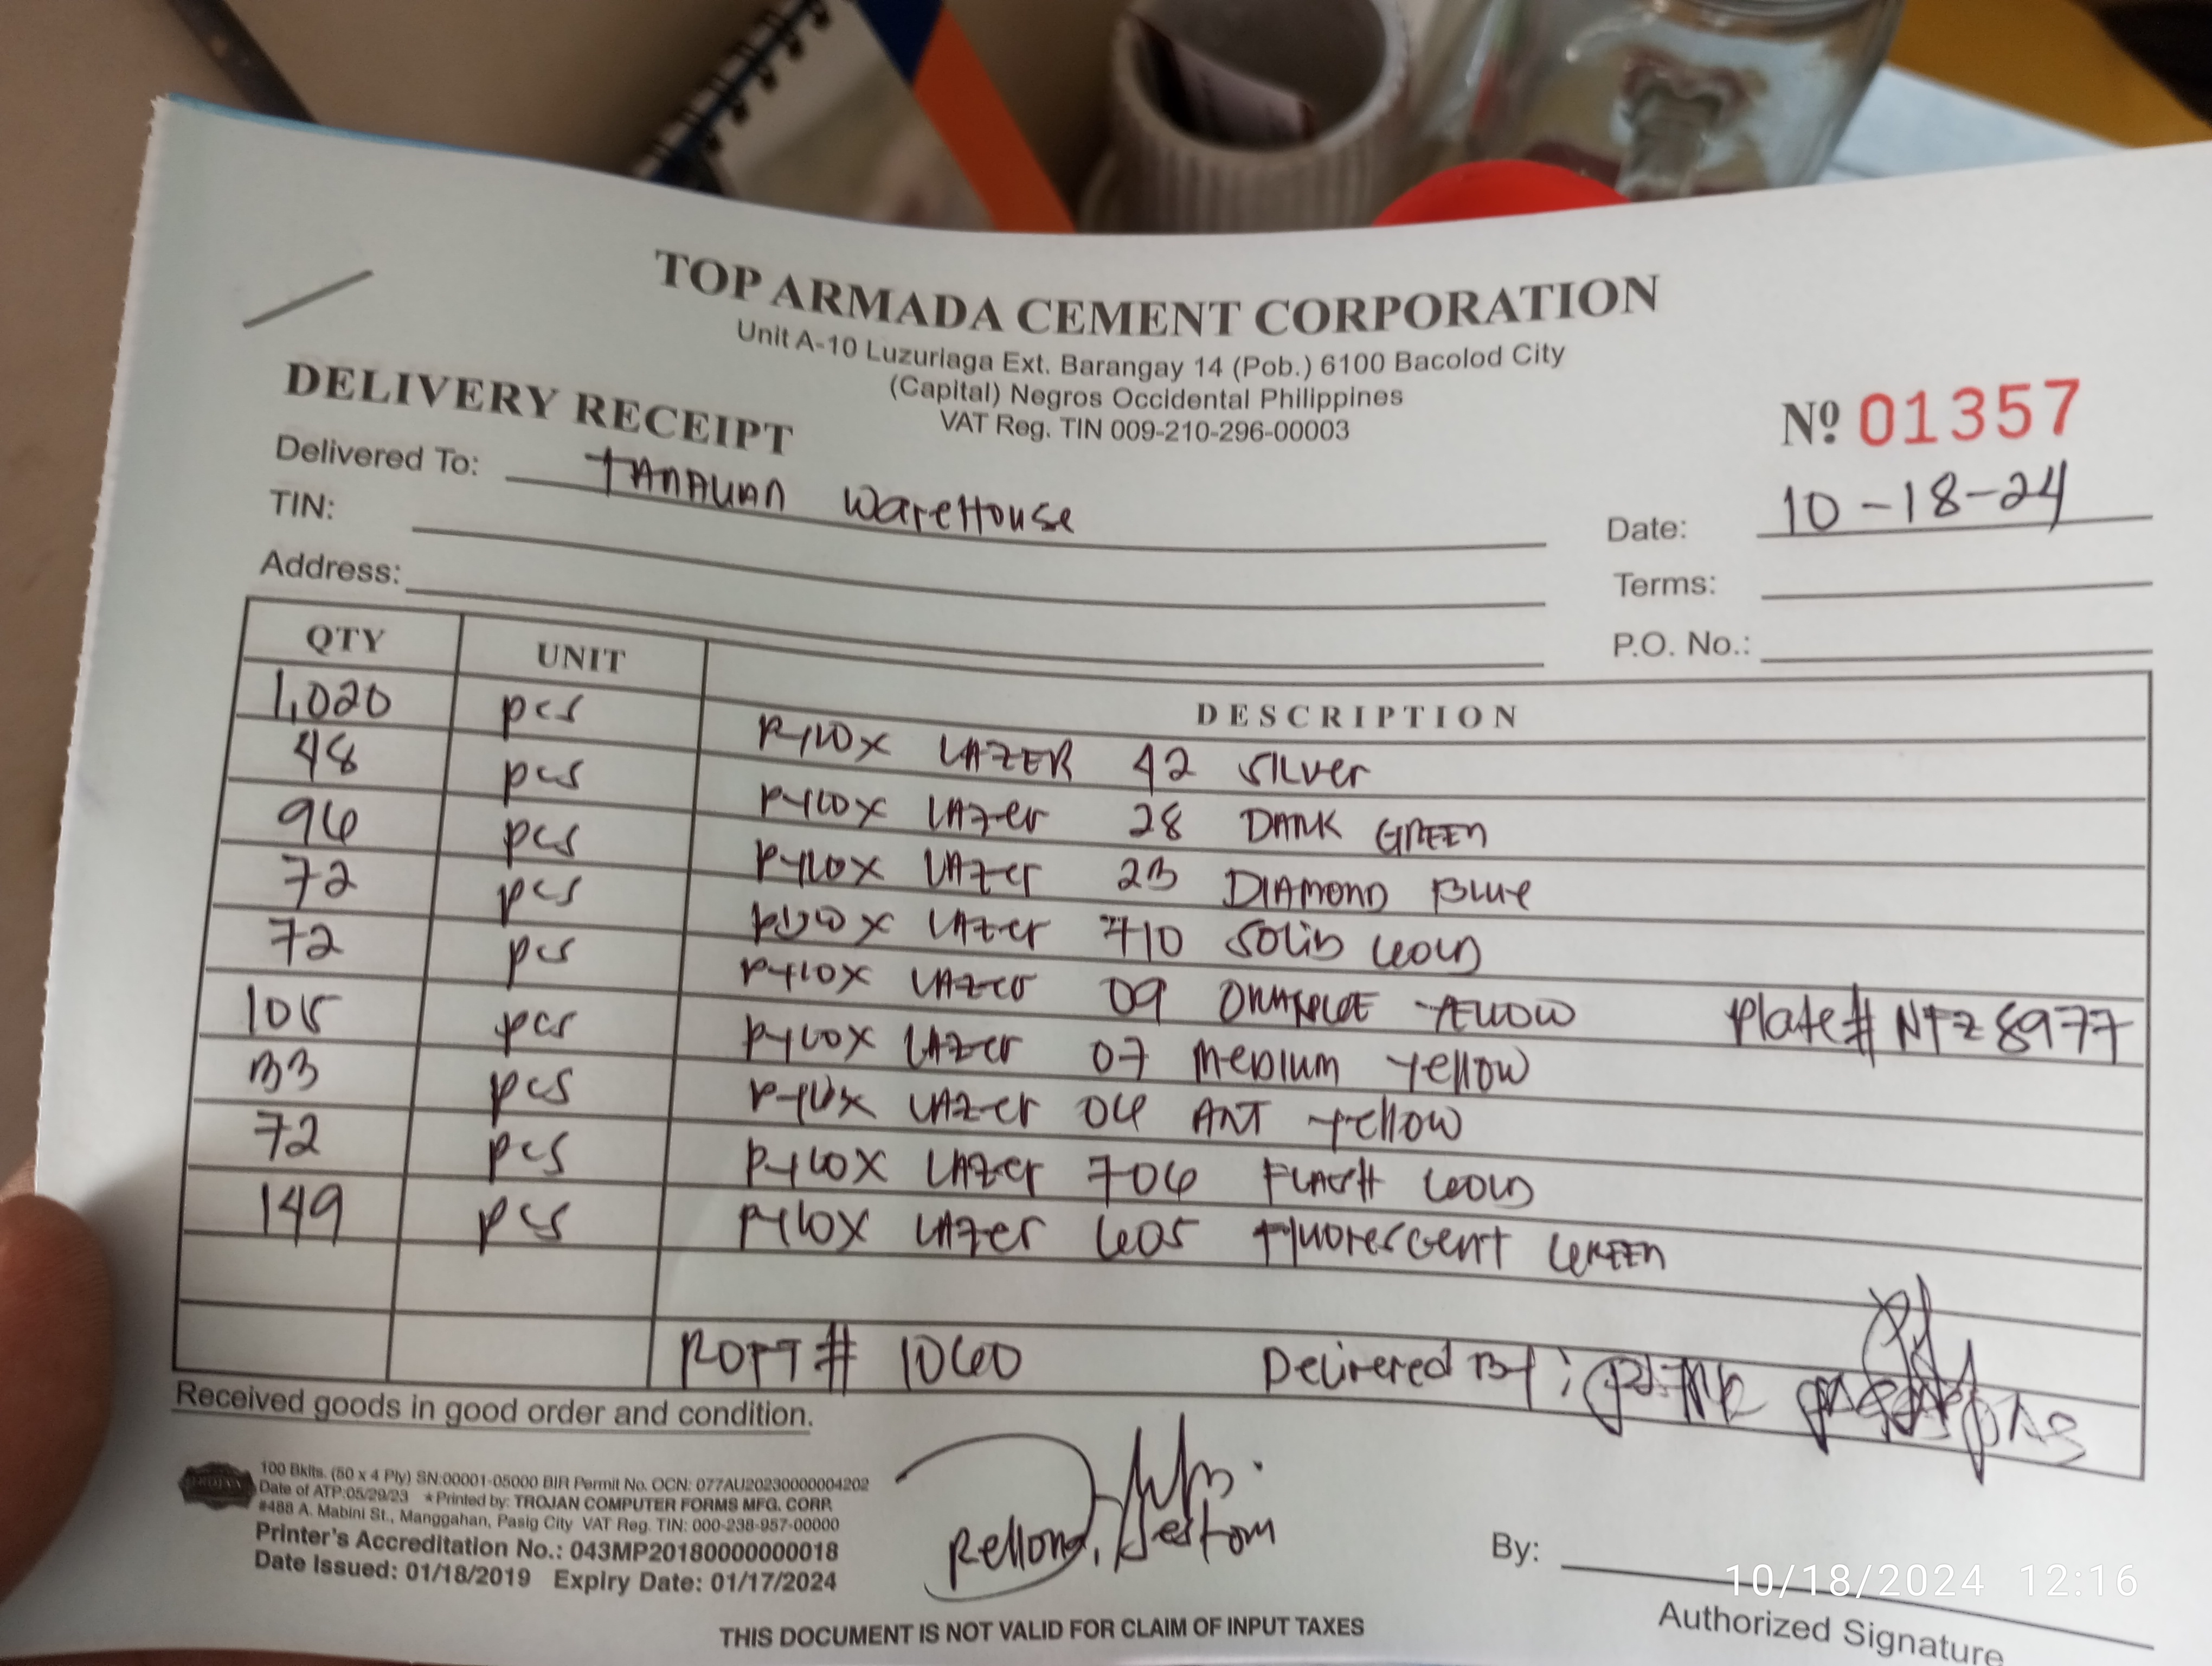 TOP ARMADA CEMENT CORPORATION
Unit A-10 Luzuriaga Ext. Barangay 14 (Pob.) 6100 Bacolod City
(Capital) Negros Occidental Philippines
VAT Reg. TIN 009-210-296-00003
DELIVERY RECEIPT
Nº 01357
Delivered To: TANAUAN WareHouse
Date: 10-18-24
TIN:
Terms:
Address:
P.O. No.:
QTY UNIT DESCRIPTION
1,020 pcs PYLOX LAZER 42 SILver
48 pcs PYLOX LAZer 28 DARK GREEN
96 pcs PYLOX LAZer 23 DIAMOND Blue
72 pcs PYLOX LAZer 710 SOLID GOLD
72 pcs PYLOX LAZer 09 Yellow Plate# 8977
pcs PYLOX LAZer 07 MEDIUM Yellow
33 pcs PYLOX LAZer 06 ANT Yellow
72 pcs PYLOX LAZer 706 FLASH GOLD
149 pcs PYLOX LAZer 605 Fluorescent GREEN
# 1060 Delivered By:
Received goods in good order and condition.
100 Bklts. (50 x 4 Ply) SN:00001-05000 BIR Permit No. OCN: 077AU20230000004202
Date of ATP:05/29/23 ★Printed by: TROJAN COMPUTER FORMS MFG. CORP.
#488 A. Mabini St., Manggahan, Pasig City VAT Reg. TIN: 000-238-957-00000
Printer's Accreditation No.: 043MP20180000000018
Date Issued: 01/18/2019 Expiry Date: 01/17/2024
By:
Authorized Signature
THIS DOCUMENT IS NOT VALID FOR CLAIM OF INPUT TAXES
10/18/2024 12:16